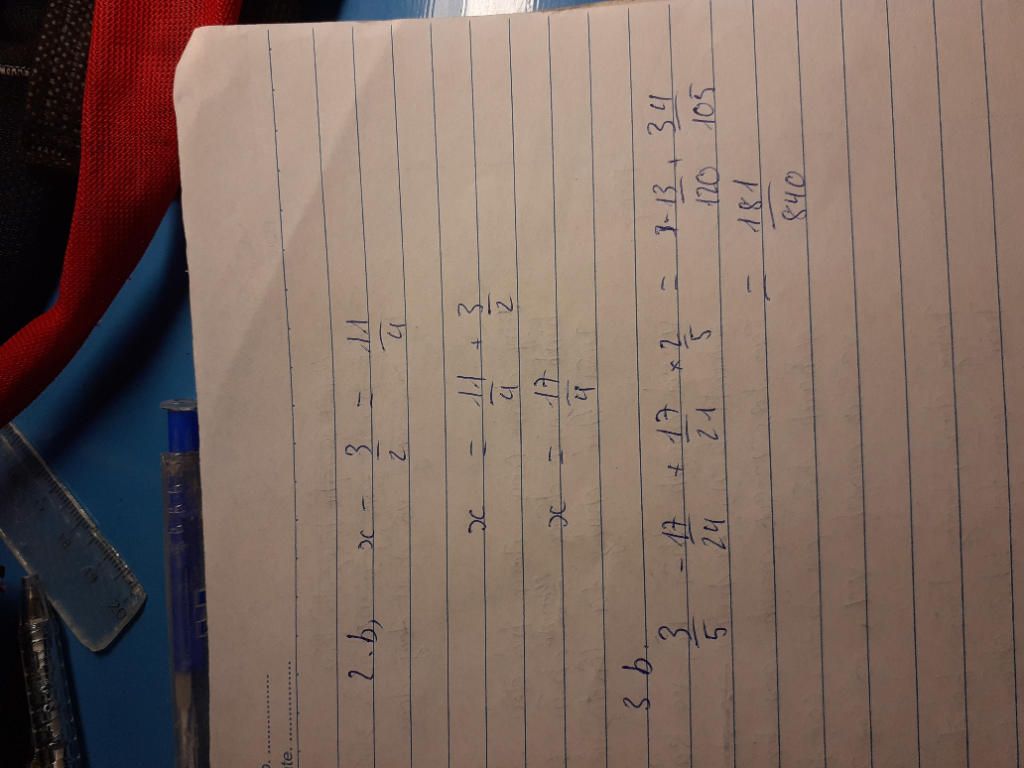 2.b, x - 3/2 = 11/4
x = 11/4 + 3/2
x = 17/4
3 b.
3/5 - 17/24 + 17/21 × 2/5 = -13/120 + 34/105
= 181/840